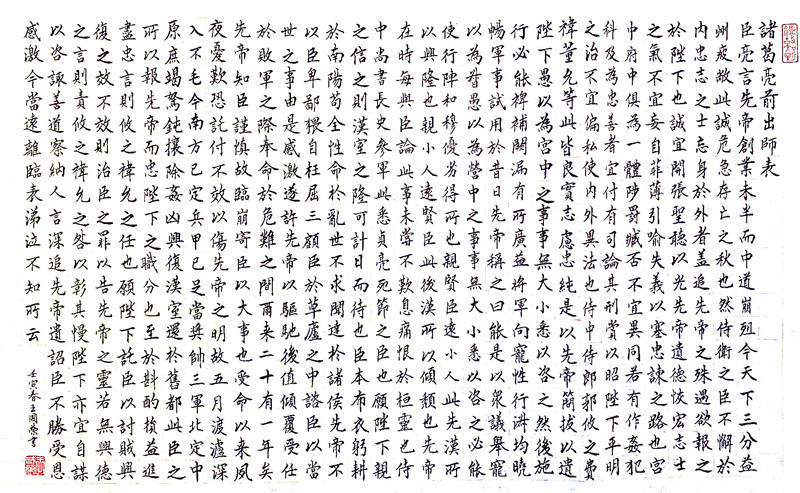 諸葛亮前出師表
臣亮言先帝創業未半而中道崩殂今天下三分益
州疲敝此誠危急存亡之秋也然侍衛之臣不懈於
内忠志之士忘身於外者蓋追先帝之殊遇欲報之
於陛下也誠宜開張聖聽以光先帝遺德恢宏志士
之氣不宜妄自菲薄引喻失義以塞忠諫之路也宮
中府中俱為一體陟罰臧否不宜異同若有作姦犯
科及為忠善者宜付有司論其刑賞以昭陛下平明
之治不宜偏私使内外異法也侍中侍郎郭攸之費
禕董允等此皆良實志慮忠純是以先帝簡拔以遺
陛下愚以為宮中之事事無大小悉以咨之然後施
行必能裨補闕漏有所廣益將軍向寵性行淑均曉
暢軍事試用於昔日先帝稱之曰能是以衆議舉寵
以為督愚以為營中之事事無大小悉以咨之必能
使行陣和穆優劣得所也親賢臣遠小人此先漢所
以興隆也親小人遠賢臣此後漢所以傾頹也先帝
在時每與臣論此事未嘗不歎息痛恨於桓靈也侍
中尚書長史參軍此悉貞亮死節之臣也願陛下親
之信之則漢室之隆可計日而待也臣本布衣躬耕
於南陽苟全性命於亂世不求聞達於諸侯先帝不
以臣卑鄙猥自枉屈三顧臣於草廬之中諮臣以當
世之事由是感激遂許先帝以驅馳後值傾覆受任
於敗軍之際奉命於危難之間爾來二十有一年矣
先帝知臣謹慎故臨崩寄臣以大事也受命以來夙
夜憂歎恐託付不效以傷先帝之明故五月渡瀘深
入不毛今南方已定兵甲已足當獎帥三軍北定中
原庶竭駑鈍攘除姦凶興復漢室還於舊都此臣之
所以報先帝而忠陛下之職分也至於斟酌損益進
盡忠言則攸之禕允之任也願陛下託臣以討賊興
復之效不效則治臣之罪以告先帝之靈若無興德
之言則責攸之禕允之咎以彰其慢陛下亦宜自謀
以咨諏善道察納人言深追先帝遺詔臣不勝受恩
感激今當遠離臨表涕泣不知所云
壬寅春王國書